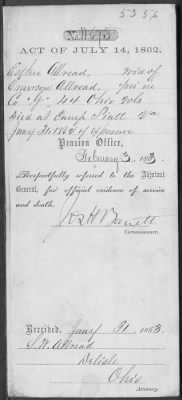 5356
No.
ACT OF JULY 14, 1862.
Esther Allread, wid of
Emerson Allread, pri in
Co. G. 44 Ohio Vols
Died at Camp Piatt Va
Jany 1862 of Exposure
Pension Office,
February 3, 1863.
Respectfully referred to the Adjutant
General, for official evidence of service
and death.
Jos H Barrett
Commissioner.
Received, Jany 31 1863
S. W. Allread
Delisle
Ohio
Attorney.